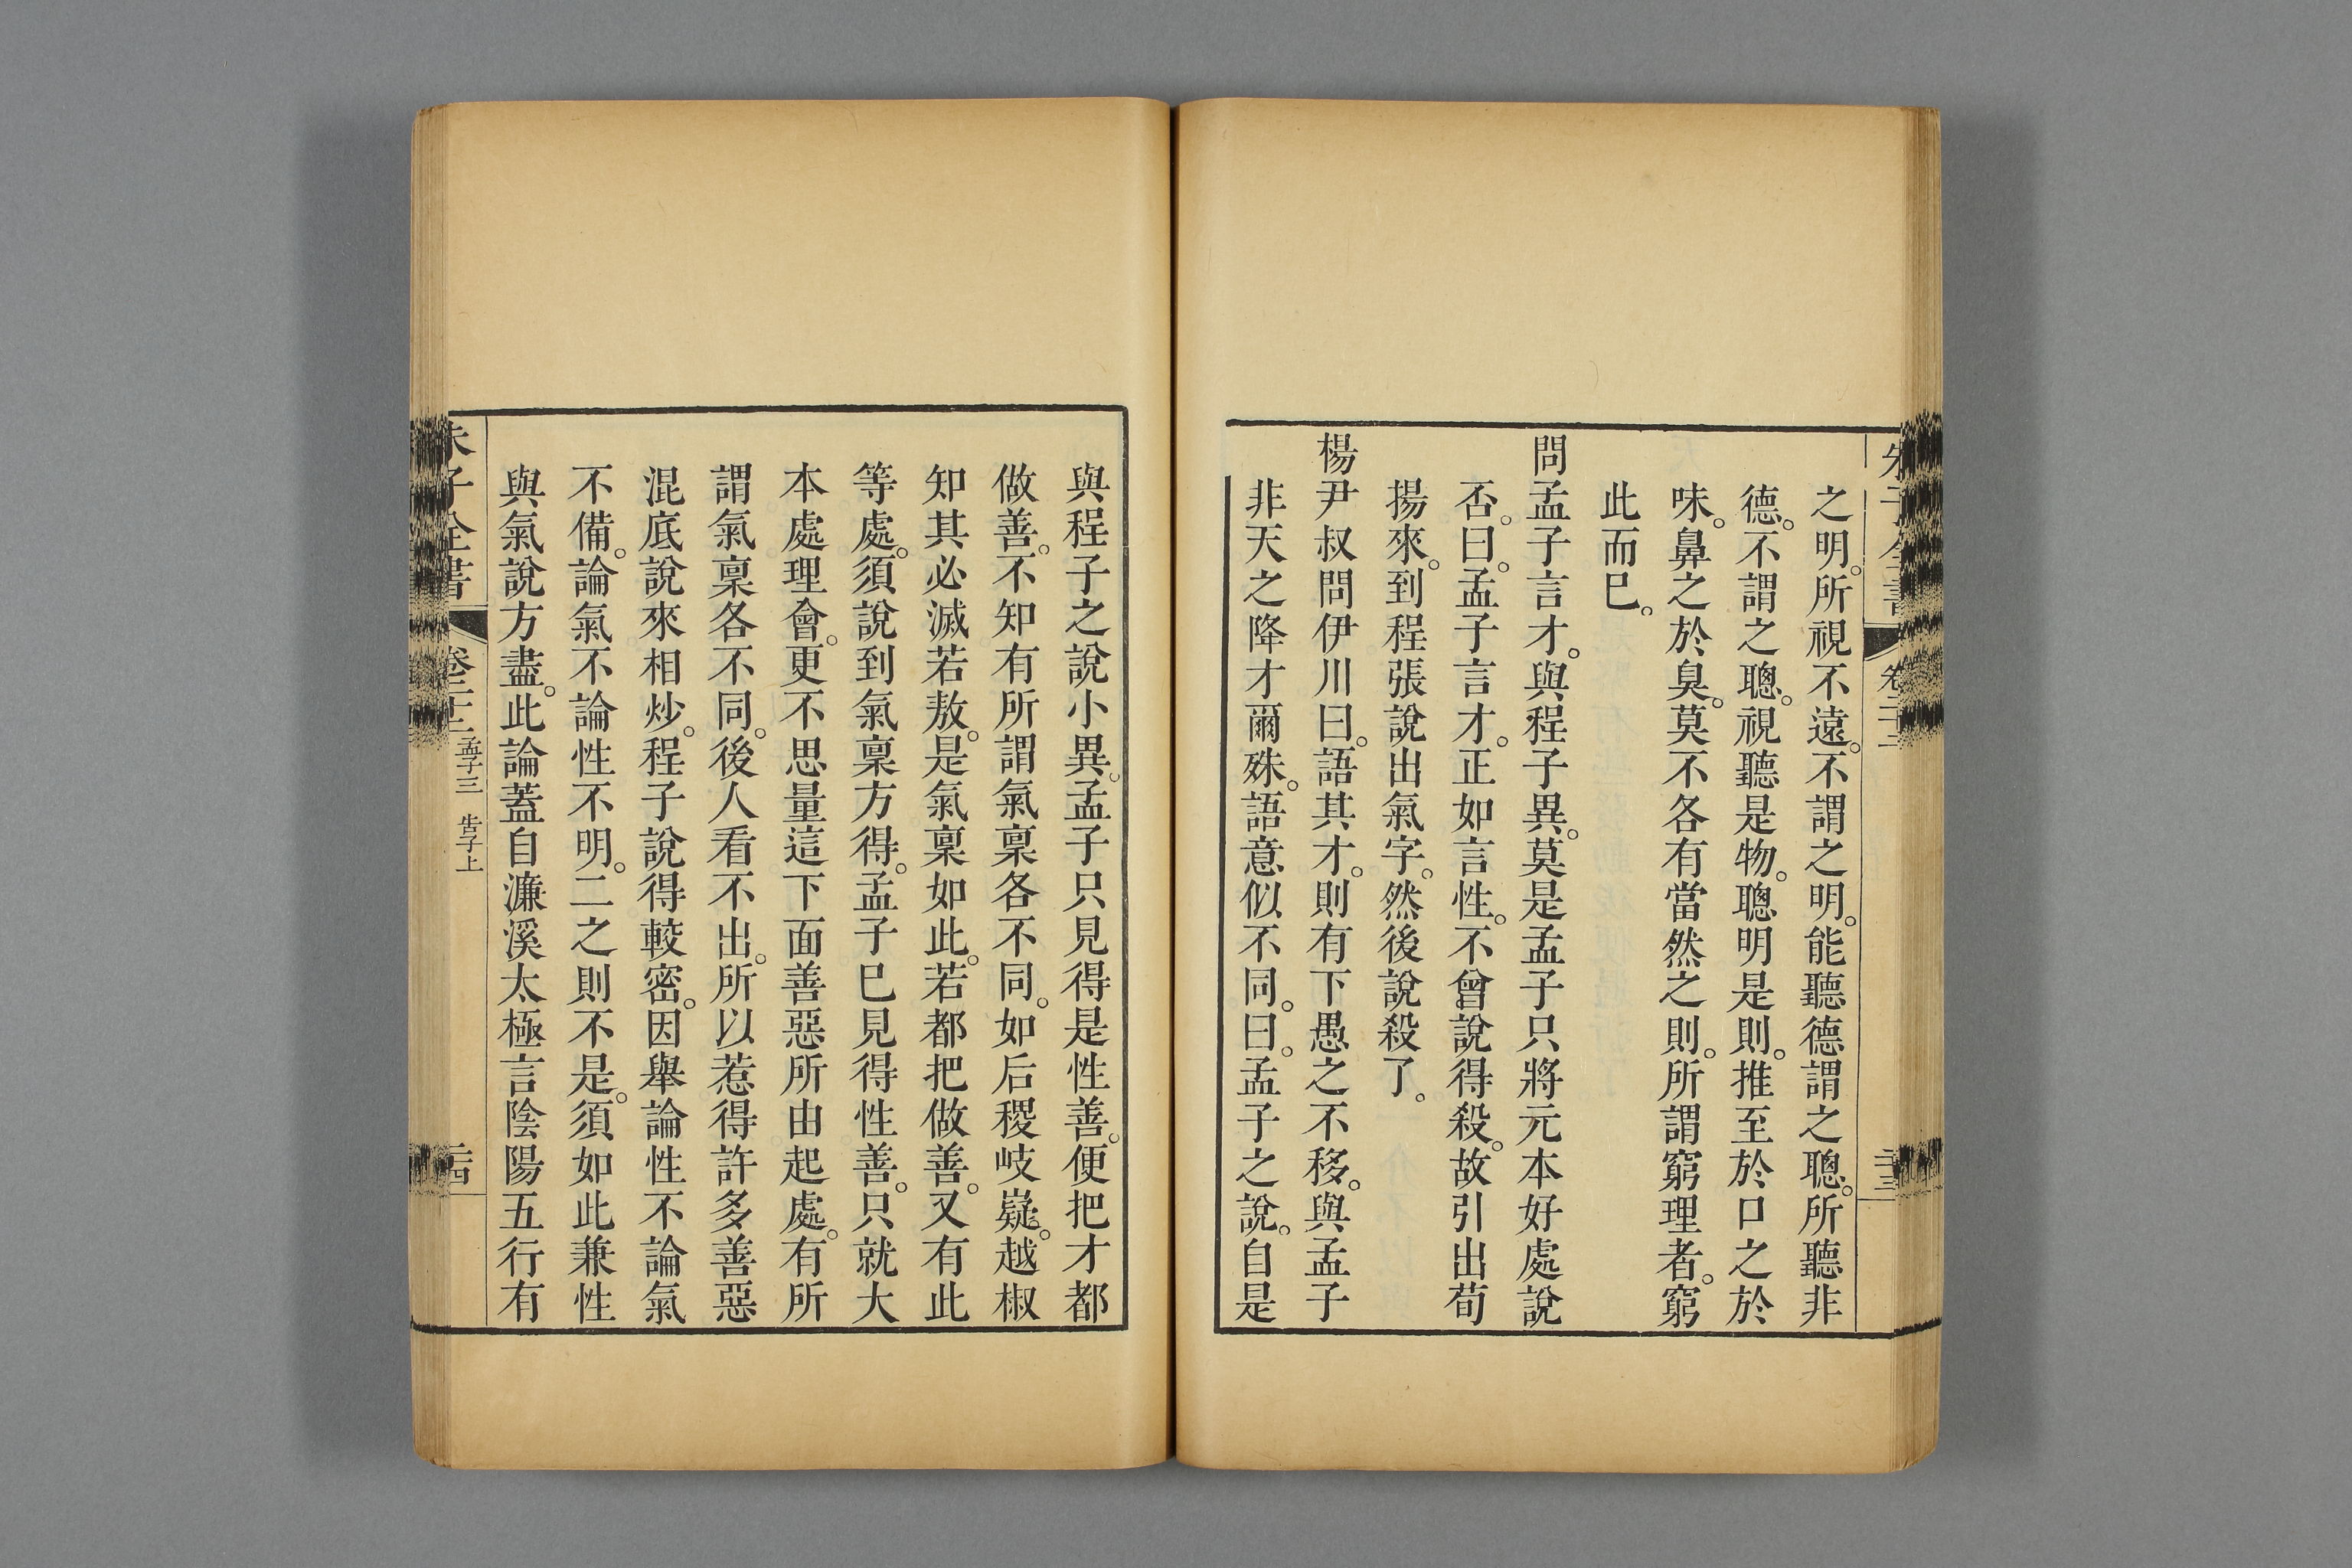 之明。所視不遠。不謂之明。能聽德謂之聰。所聽非
德。不謂之聰。視聽是物。聰明是則。推至於口之於
味。鼻之於臭。莫不各有當然之則。所謂窮理者。窮
此而已。
問孟子言才。與程子異。莫是孟子只將元本好處說
否。曰。孟子言才。正如言性。不曾說得殺。故引出荀
揚來。到程張說出氣字。然後說殺了。
楊尹叔問伊川曰。語其才。則有下愚之不移。與孟子
非天之降才爾殊。語意似不同。曰。孟子之說。自是
與程子之說小異。孟子只見得是性善。便把才都
做善。不知有所謂氣稟各不同。如后稷岐嶷。越椒
知其必滅若敖。是氣稟如此。若都把做善。又有此
等處。須說到氣稟方得。孟子已見得性善。只就大
本處理會。更不思量這下面善惡所由起處。有所
謂氣稟各不同。後人看不出。所以惹得許多善惡
混底說來相炒。程子說得較密。因舉論性不論氣
不備。論氣不論性不明。二之則不是。須如此兼性
與氣說方盡。此論蓋自濂溪太極言陰陽五行有
孟子三 告子上